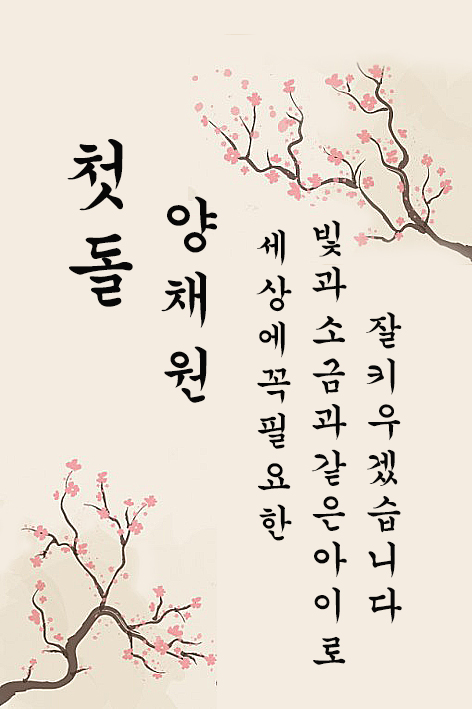 첫돌
양채원
세상에꼭필요한
빛과소금과같은아이로
잘키우겠습니다